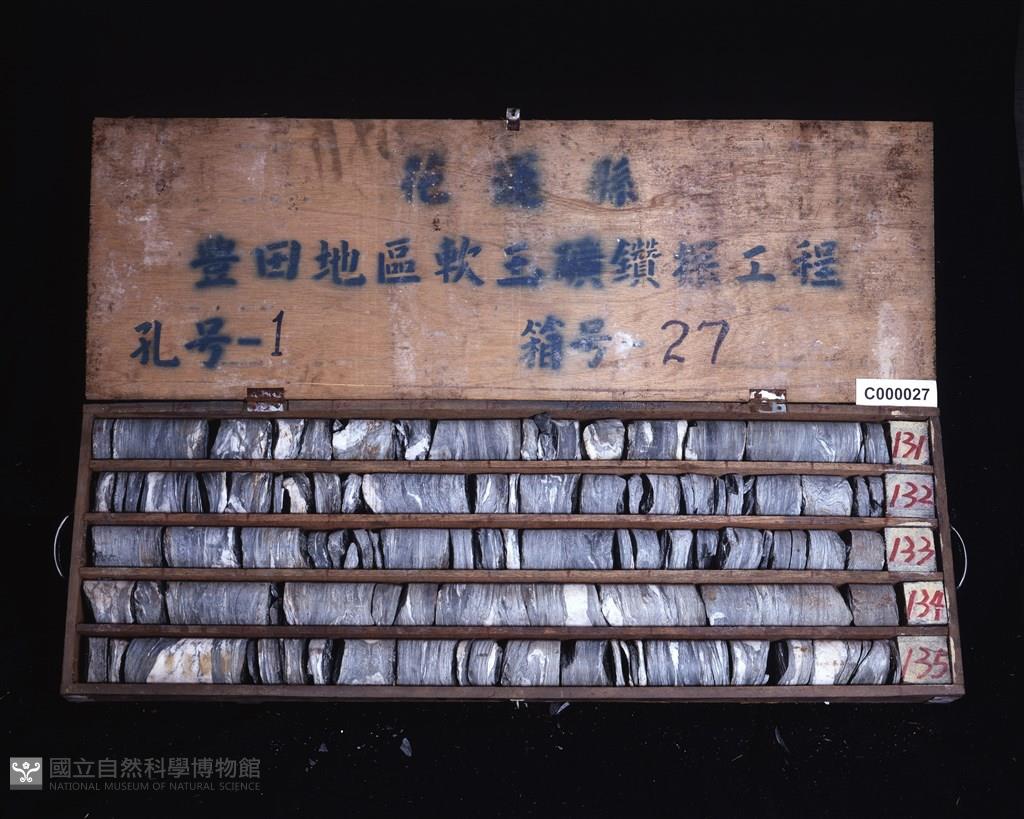 花蓮縣
豊田地區軟玉礦鑽探工程
孔号-1
箱号-27
C000027
131
132
133
134
135
國立自然科學博物館
NATIONAL MUSEUM OF NATURAL SCIENCE